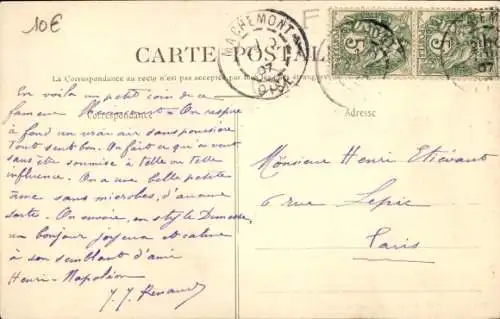 10€
MACHEMONT
07
OISE
CARTE POSTALE
La Correspondance au recto n'est pas acceptée par
Correspondance
Adresse
En voilà un petit coin de ce
fameux On respire
à fond un vrai air sans poussière
Tout sent bon. On fait ce qu'on veut
sans être soumise à telle ou telle
influence. On a une belle petite
âme sans microbes, d'aucune
sorte. On envoie, en style Dumesse,
un bonjour joyeux et calme
à son semblant d'ami
Henri-Napoléon
J. J. Renaud
Monsieur Henri Etiévant
6 rue Lepic
Paris
5
5